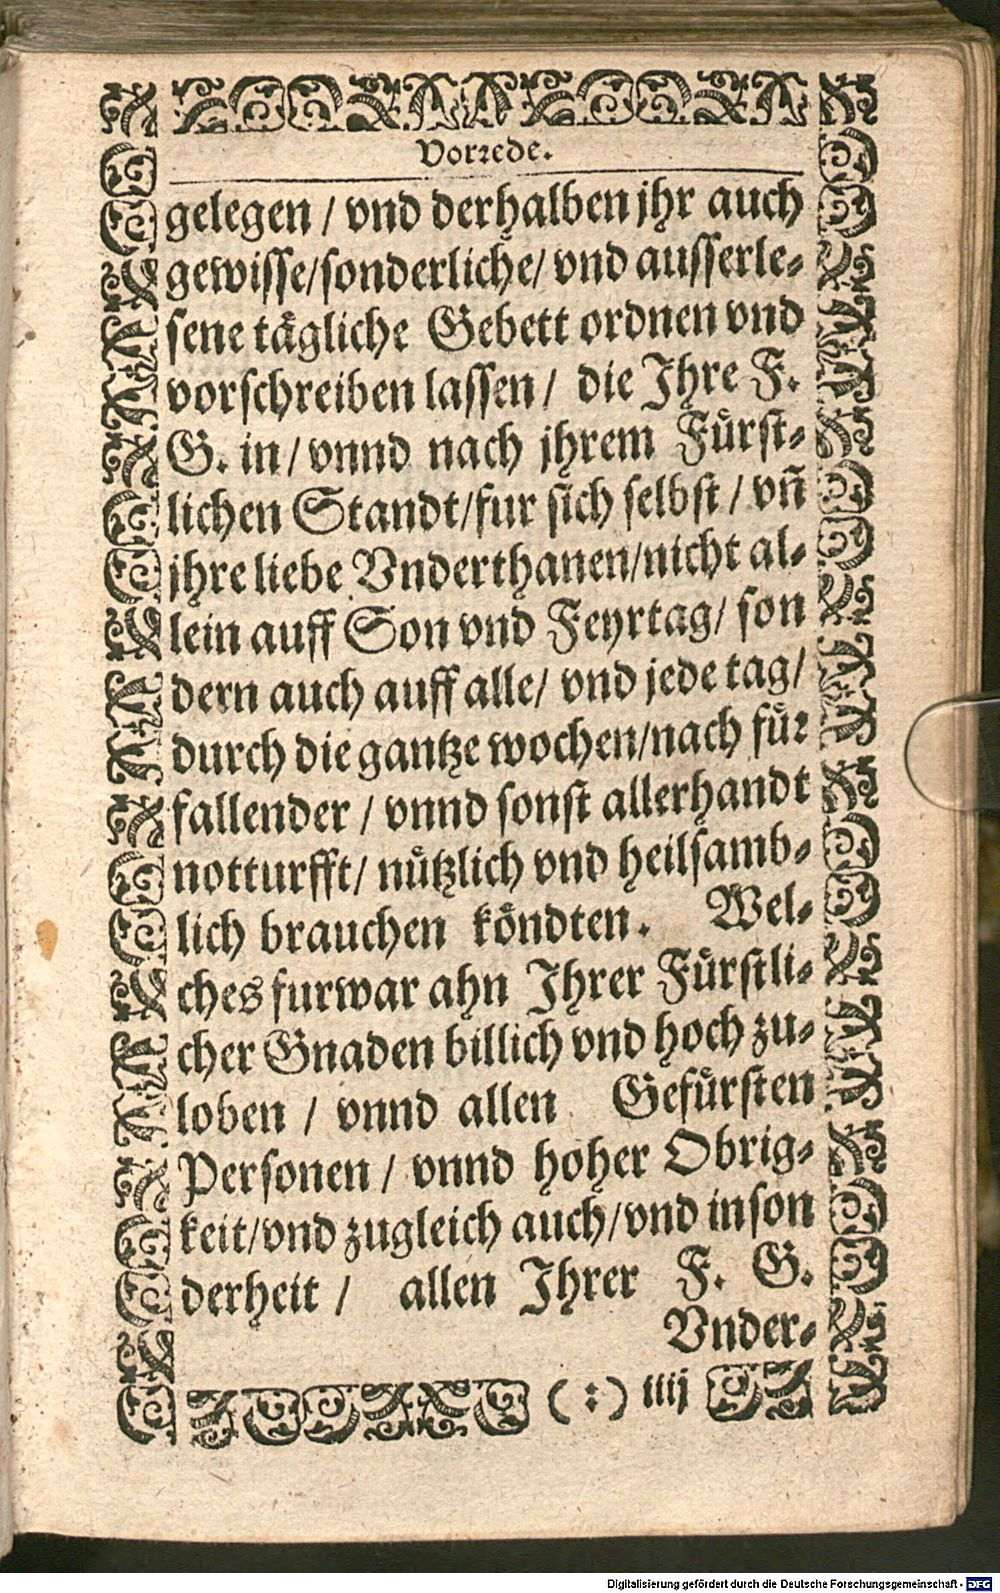 Vorrede.
gelegen / vnd derhalben jhr auch
gewisse/sonderliche/ vnd ausserle-
sene tägliche Gebett ordnen vnd
vorschreiben lassen / die Ihre F.
G. in / vnnd nach jhrem Fürst-
lichen Standt/fur sich selbst / vñ
jhre liebe Vnderthanen/nicht al-
lein auff Son vnd Feyrtag/ son
dern auch auff alle/ vnd jede tag/
durch die gantze wochen/nach für
fallender / vnnd sonst allerhandt
notturfft/ nützlich vnd heilsamb-
lich brauchen köndten. Wel-
ches furwar ahn Ihrer Fürstli-
cher Gnaden billich vnd hoch zu-
loben / vnnd allen Gefürsten
Personen / vnnd hoher Obrig-
keit/vnd zugleich auch/vnd inson
derheit / allen Ihrer F. G.
Vnder-
(:) iiij
Digitalisierung gefördert durch die Deutsche Forschungsgemeinschaft - DFG